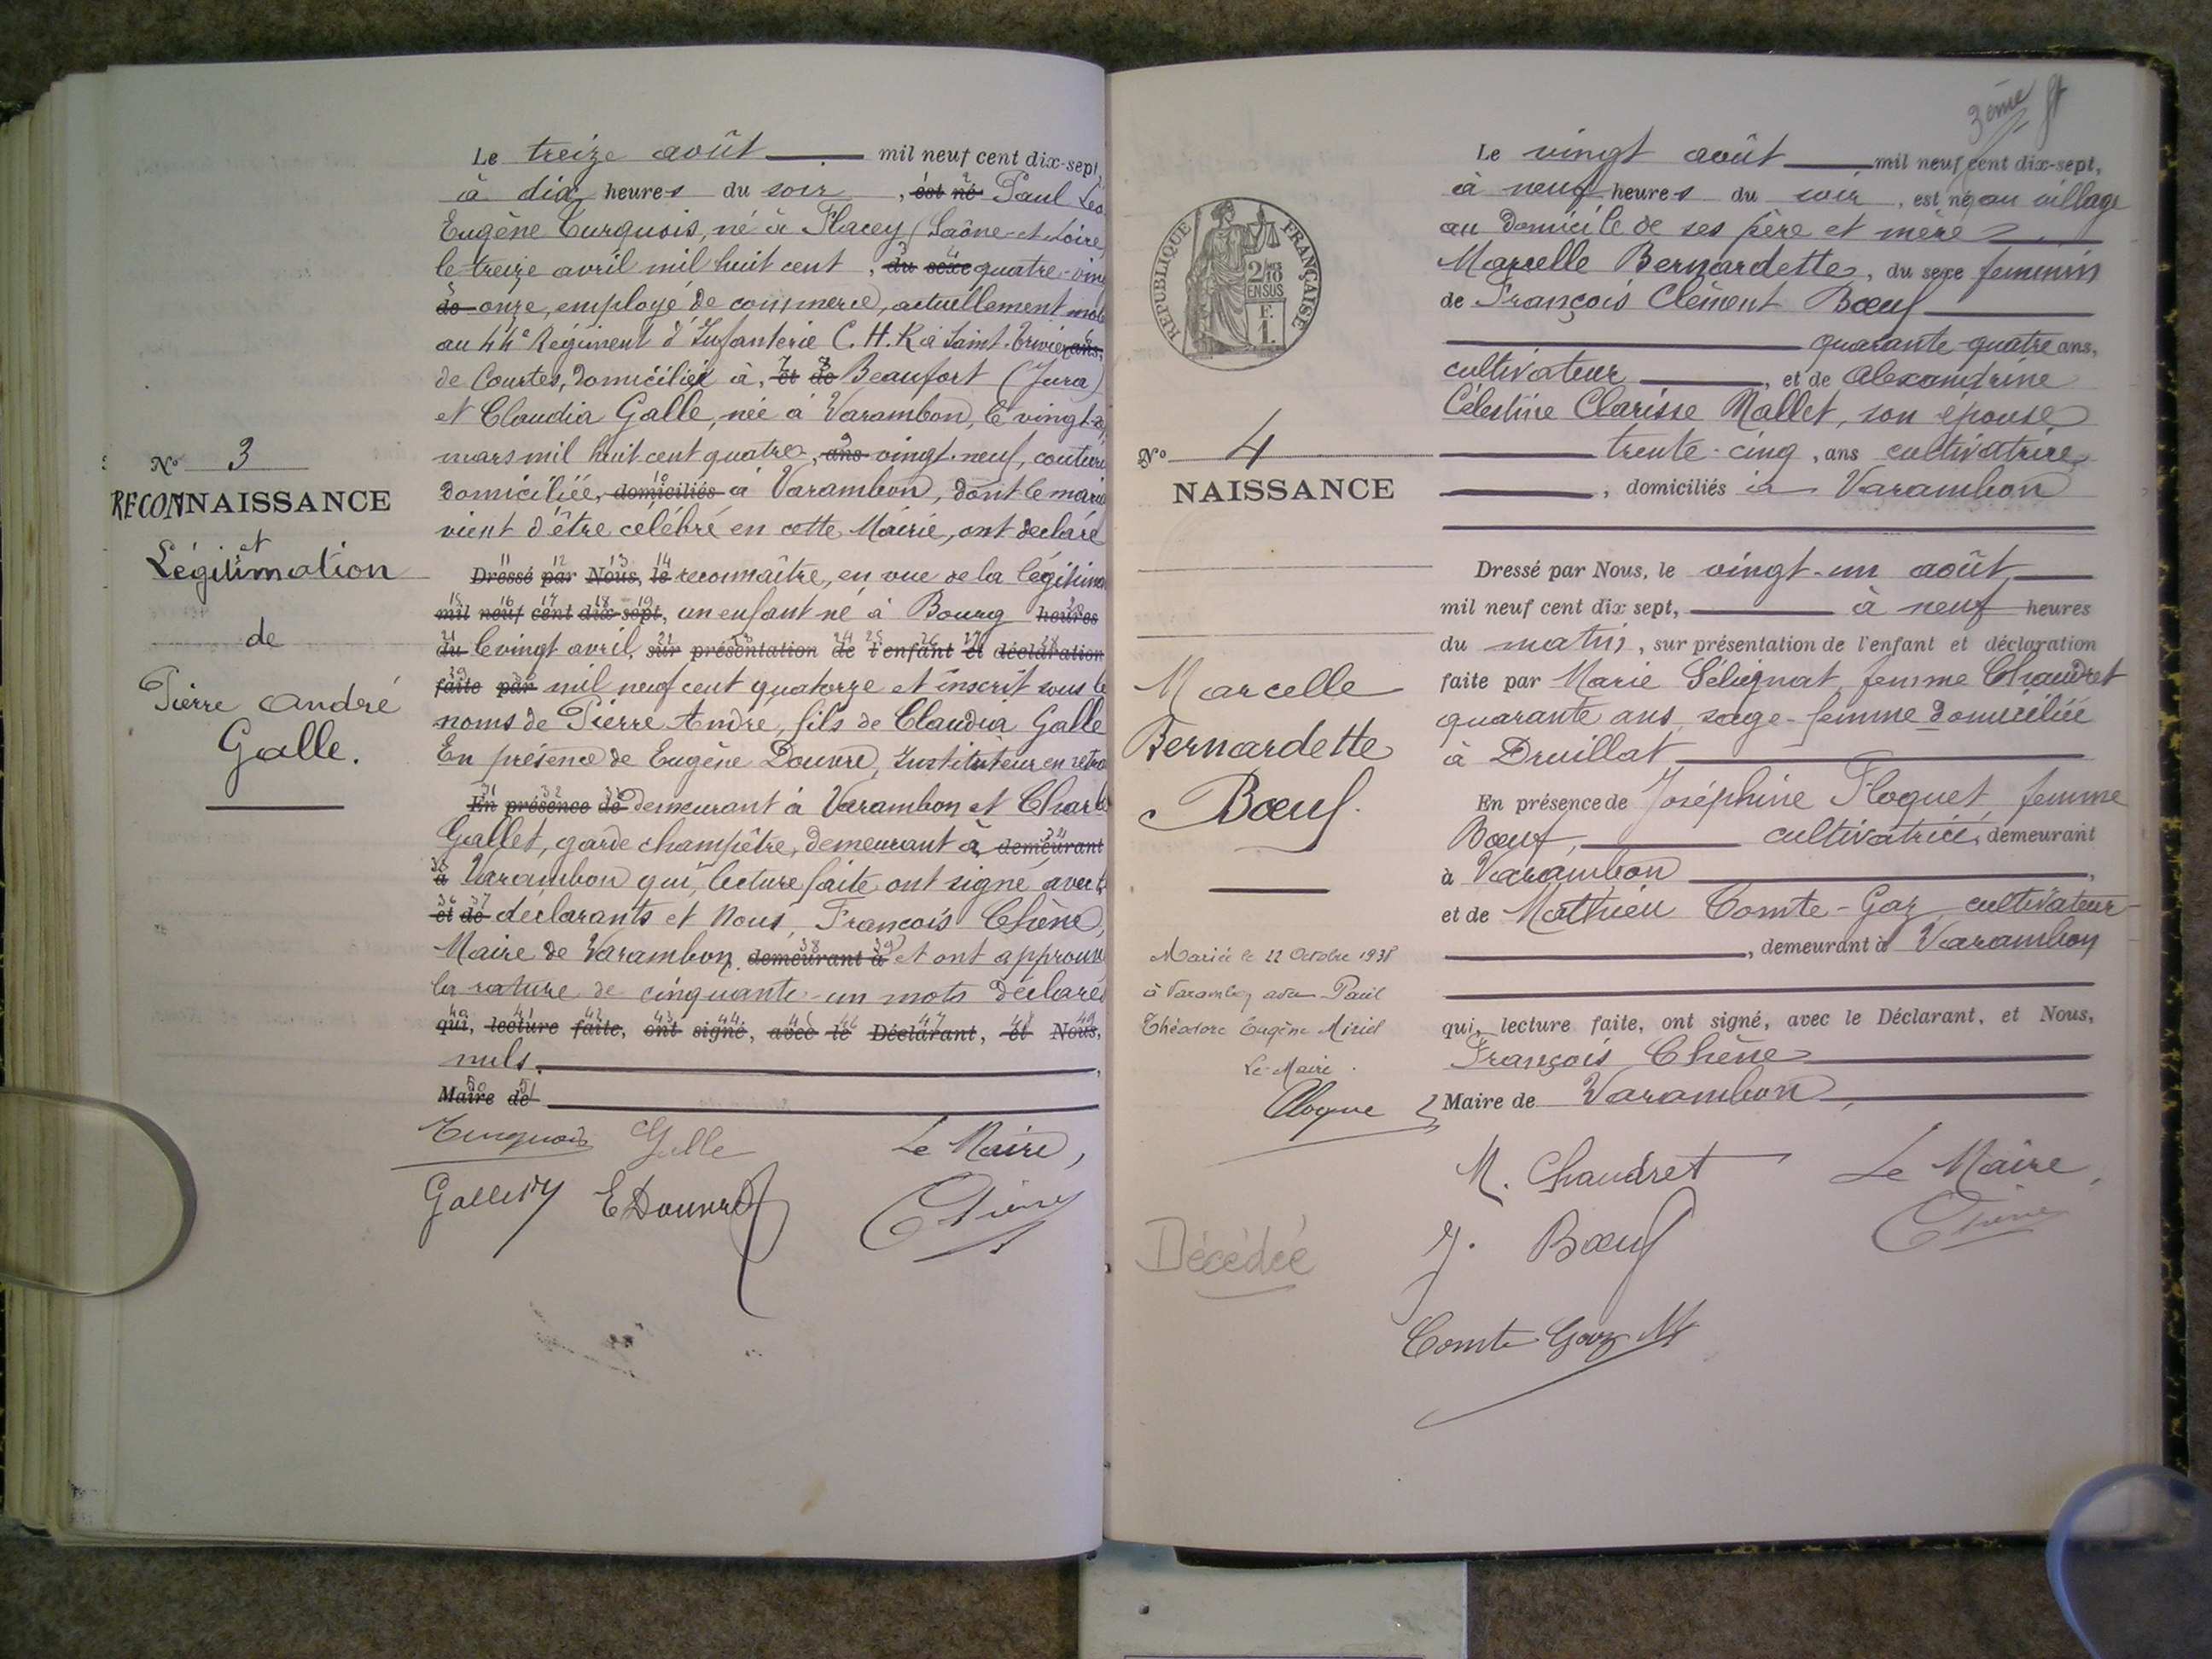 N° 3
RECONNAISSANCE
et
Légitimation
de
Pierre André
Galle.
Le treize août mil neuf cent dix-sept,
à dix heures du soir, est né Paul Léo
Eugène Turquois, né à Flacey (Saône-et-Loire)
le treize avril mil huit cent, du sexe quatre-vin
de onze, employé de commerce, actuellement mob
au 44e Régiment d'Infanterie C.H.R à Saint-Trivier ans,
de Courtes, domicilié à, et de Beaufort (Jura)
et Claudia Galle, née à Varambon, le vingt-
mars mil huit cent quatre, ans vingt-neuf, couturi
domiciliée, domiciliés à Varambon, dont le maria
vient d'être célébré en cette Mairie, ont déclaré
Dressé par Nous, le reconnaître, en vue de la légitima
mil neuf cent dix-sept, un enfant né à Bourg heures
du le vingt avril, sur présentation de l'enfant et déclaration
faite par mil neuf cent quatorze et inscrit sous le
noms de Pierre André, fils de Claudia Galle
En présence de Eugène Douvre, Instituteur en retra
En présence de demeurant à Varambon et Charle
Gallet, garde champêtre, demeurant à demeurant
à Varambon qui, lecture faite ont signé avec le
et de déclarants et Nous, François Chêne,
Maire de Varambon demeurant à et ont approuv
la rature de cinquante-un mots déclarés
qui, lecture faite, ont signé, avec le Déclarant, et Nous,
nuls.
Maire de
Turquois Galle Le Maire,
Gallet E Douvre Chêne
3ème
REPUBLIQUE FRANÇAISE
2/10
EN SUS
F.
1.
N° 4
NAISSANCE
Marcelle
Bernardette
Bœuf.
Mariée le 22 Octobre 1938
à Varambon avec Paul
Théodore Eugène Miziel
Le Maire.
Décédée
Le vingt août mil neuf cent dix-sept,
à neuf heures du soir, est né au village
au domicile de ses père et mère
Marcelle Bernardette, du sexe féminin
de François Clément Bœuf
quarante-quatre ans,
cultivateur, et de Alexandrine
Célestine Clarisse Mallet, son épouse
trente-cinq, ans cultivatrice
, domiciliés à Varambon
Dressé par Nous, le vingt-un août
mil neuf cent dix sept, à neuf heures
du matin, sur présentation de l'enfant et déclaration
faite par Marie Sélignat femme Chaudret
quarante ans, sage-femme domiciliée
à Druillat
En présence de Joséphine Floquet, femme
Bœuf, cultivatrice, demeurant
à Varambon,
et de Mathieu Comte-Gaz, cultivateur
, demeurant à Varambon
qui, lecture faite, ont signé, avec le Déclarant, et Nous,
François Chêne
Maire de Varambon,
M. Chaudret Le Maire,
J. Bœuf Chêne
Comte Gaz M